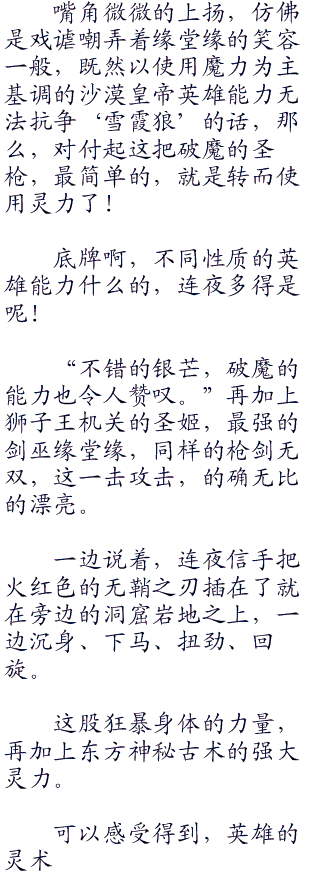 嘴角微微的上扬，仿佛
是戏谑嘲弄着缘堂缘的笑容
一般，既然以使用魔力为主
基调的沙漠皇帝英雄能力无
法抗争‘雪霞狼’的话，那
么，对付起这把破魔的圣
枪，最简单的，就是转而使
用灵力了！
底牌啊，不同性质的英
雄能力什么的，连夜多得是
呢！
“不错的银芒，破魔的
能力也令人赞叹。”再加上
狮子王机关的圣姬，最强的
剑巫缘堂缘，同样的枪剑无
双，这一击攻击，的确无比
的漂亮。
一边说着，连夜信手把
火红色的无鞘之刃插在了就
在旁边的洞窟岩地之上，一
边沉身、下马、扭劲、回
旋。
这股狂暴身体的力量，
再加上东方神秘古术的强大
灵力。
可以感受得到，英雄的
灵术